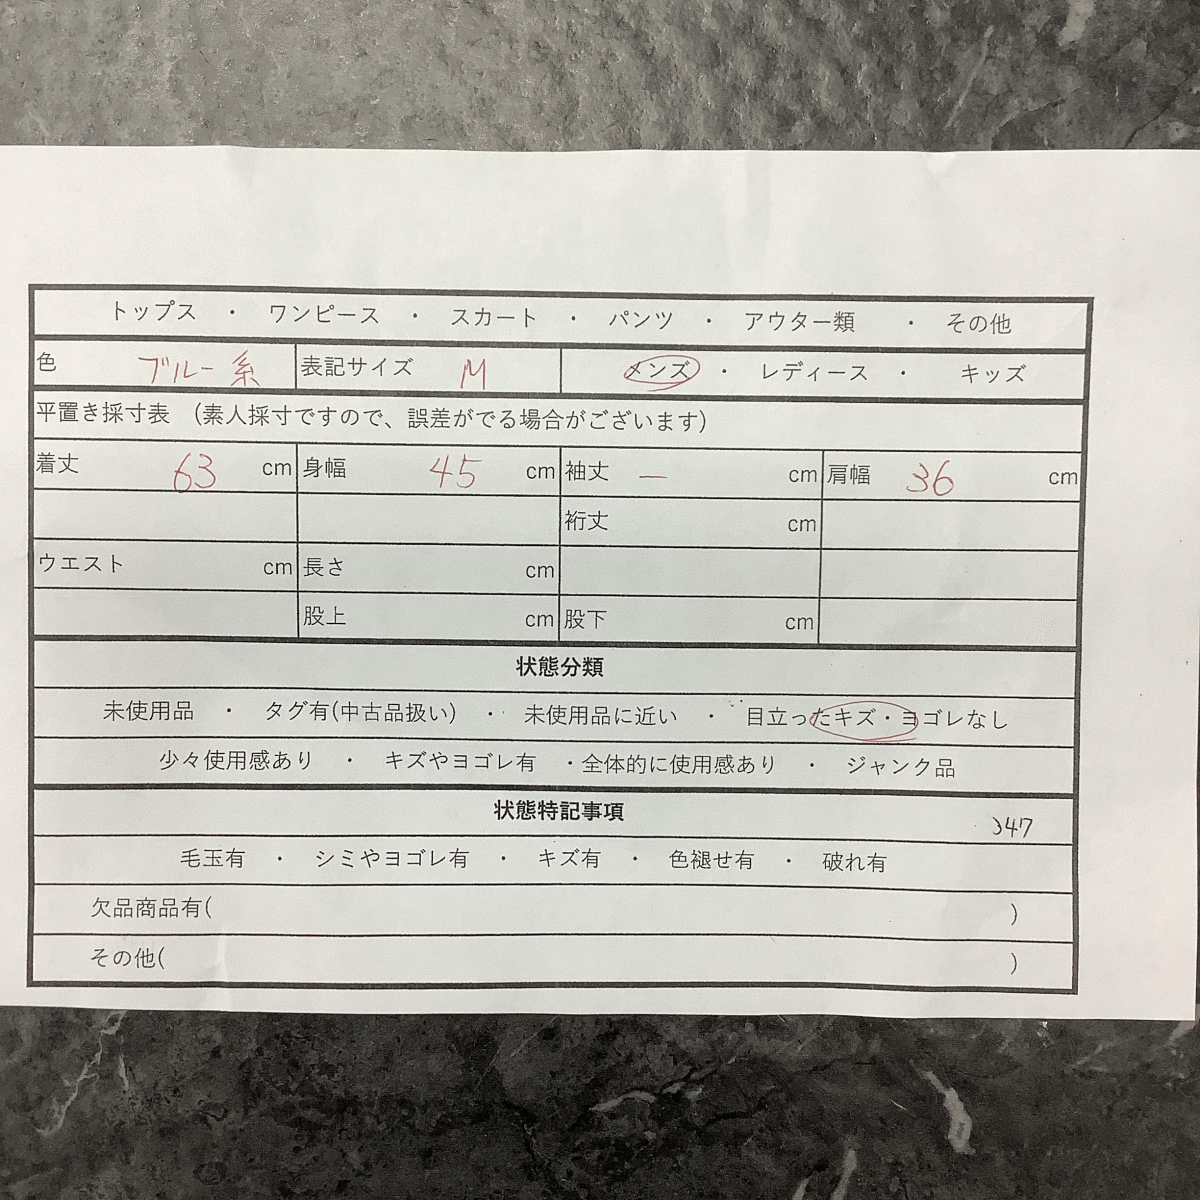 トップス ・ ワンピース ・ スカート ・ パンツ ・ アウター類 ・ その他
色 ブルー系 表記サイズ M メンズ ・ レディース ・ キッズ
平置き採寸表 (素人採寸ですので、誤差がでる場合がございます)
着丈 63 cm 身幅 45 cm 袖丈 ー cm 肩幅 36 cm
裄丈 cm
ウエスト cm 長さ cm
股上 cm 股下 cm
状態分類
未使用品 ・ タグ有(中古品扱い) ・ 未使用品に近い ・ 目立ったキズ・ヨゴレなし
少々使用感あり ・ キズやヨゴレ有 ・全体的に使用感あり ・ ジャンク品
状態特記事項
毛玉有 ・ シミやヨゴレ有 ・ キズ有 ・ 色褪せ有 ・ 破れ有
欠品商品有( )
その他( )